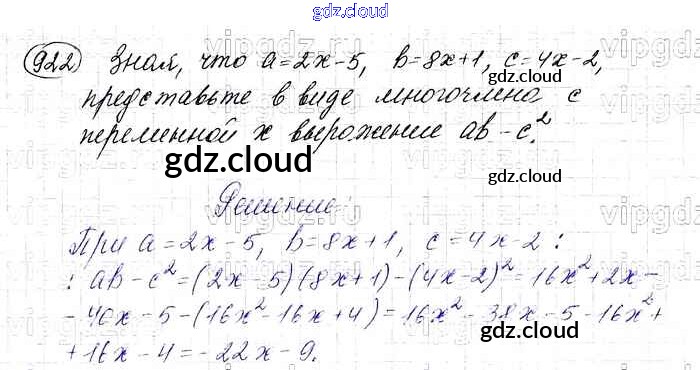 gdz.cloud
922 Зная, что a=2x-5, b=8x+1, c=4x-2,
gdz.cloud
представьте в виде многочлена с
переменной x выражение ab-c².
gdz.cloud
gdz.cloud
gdz.cloud
Решение:
При a=2x-5, b=8x+1, c=4x-2:
: ab-c²=(2x-5)(8x+1)-(4x-2)²=16x²+2x-
-40x-5-(16x²-16x+4)=16x²-38x-5-16x²+
+16x-4=-22x-9.
gdz.cloud
gdz.cloud